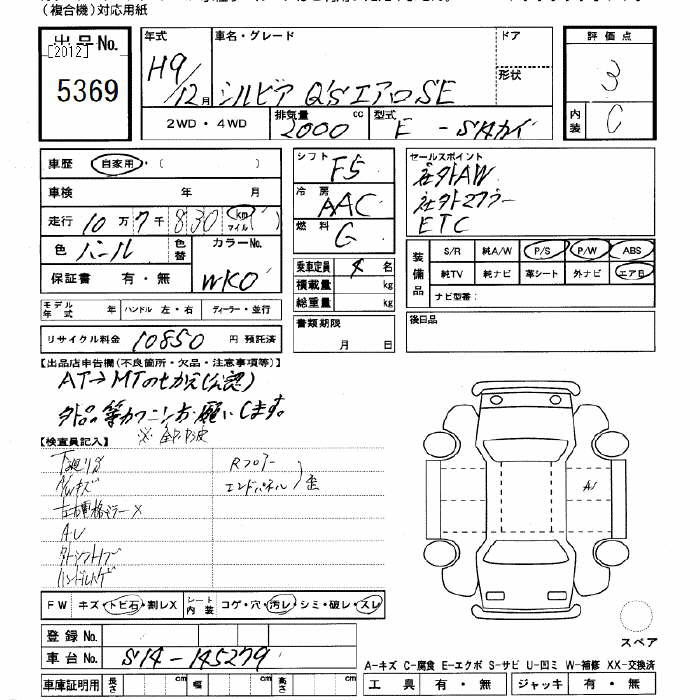 （複合機）対応用紙
出品No.
[2012]
5369
年式
H9/12月
車名・グレード
シルビア Q'SエアロSE
ドア
形状
評価点
3
内装
C
2WD・4WD
排気量
2000
cc
型式
E - S14カイ
車歴
自家用・（ ）
車検 年 月
走行 10万7千830 km マイル
色 パール 色替
カラーNo.
WK0
保証書 有・無
モデル年式 年 ハンドル 左・右 ディーラー・並行
リサイクル料金 10850 円 預託済
シフト F5
冷房 AAC
燃料 G
乗車定員 4 名
積載量 kg
総重量 kg
書類期限
月 日
セールスポイント
社外AW
社外マフラー
ETC
装備品
S/R 純A/W P/S P/W ABS
純TV 純ナビ 革シート 外ナビ エアB
ナビ型番：
後日品
【出品店申告欄(不良箇所・欠品・注意事項等)】
AT→MTのせかえ(公認)
外品等カクニンお願いします。
【検査員記入】
Rフロアー
エンドパネル 歪
A1
FW キズ・トビ石・割レX
シート内装 コゲ・穴・汚レ・シミ・破レ・スレ
登録No.
車台No. S14-145279
スペア
A-キズ C-腐食 E-エクボ S-サビ U-凹ミ W-補修 XX-交換済
車庫証明用 長さ cm 幅 cm 高さ cm
工具 有・無 ジャッキ 有・無